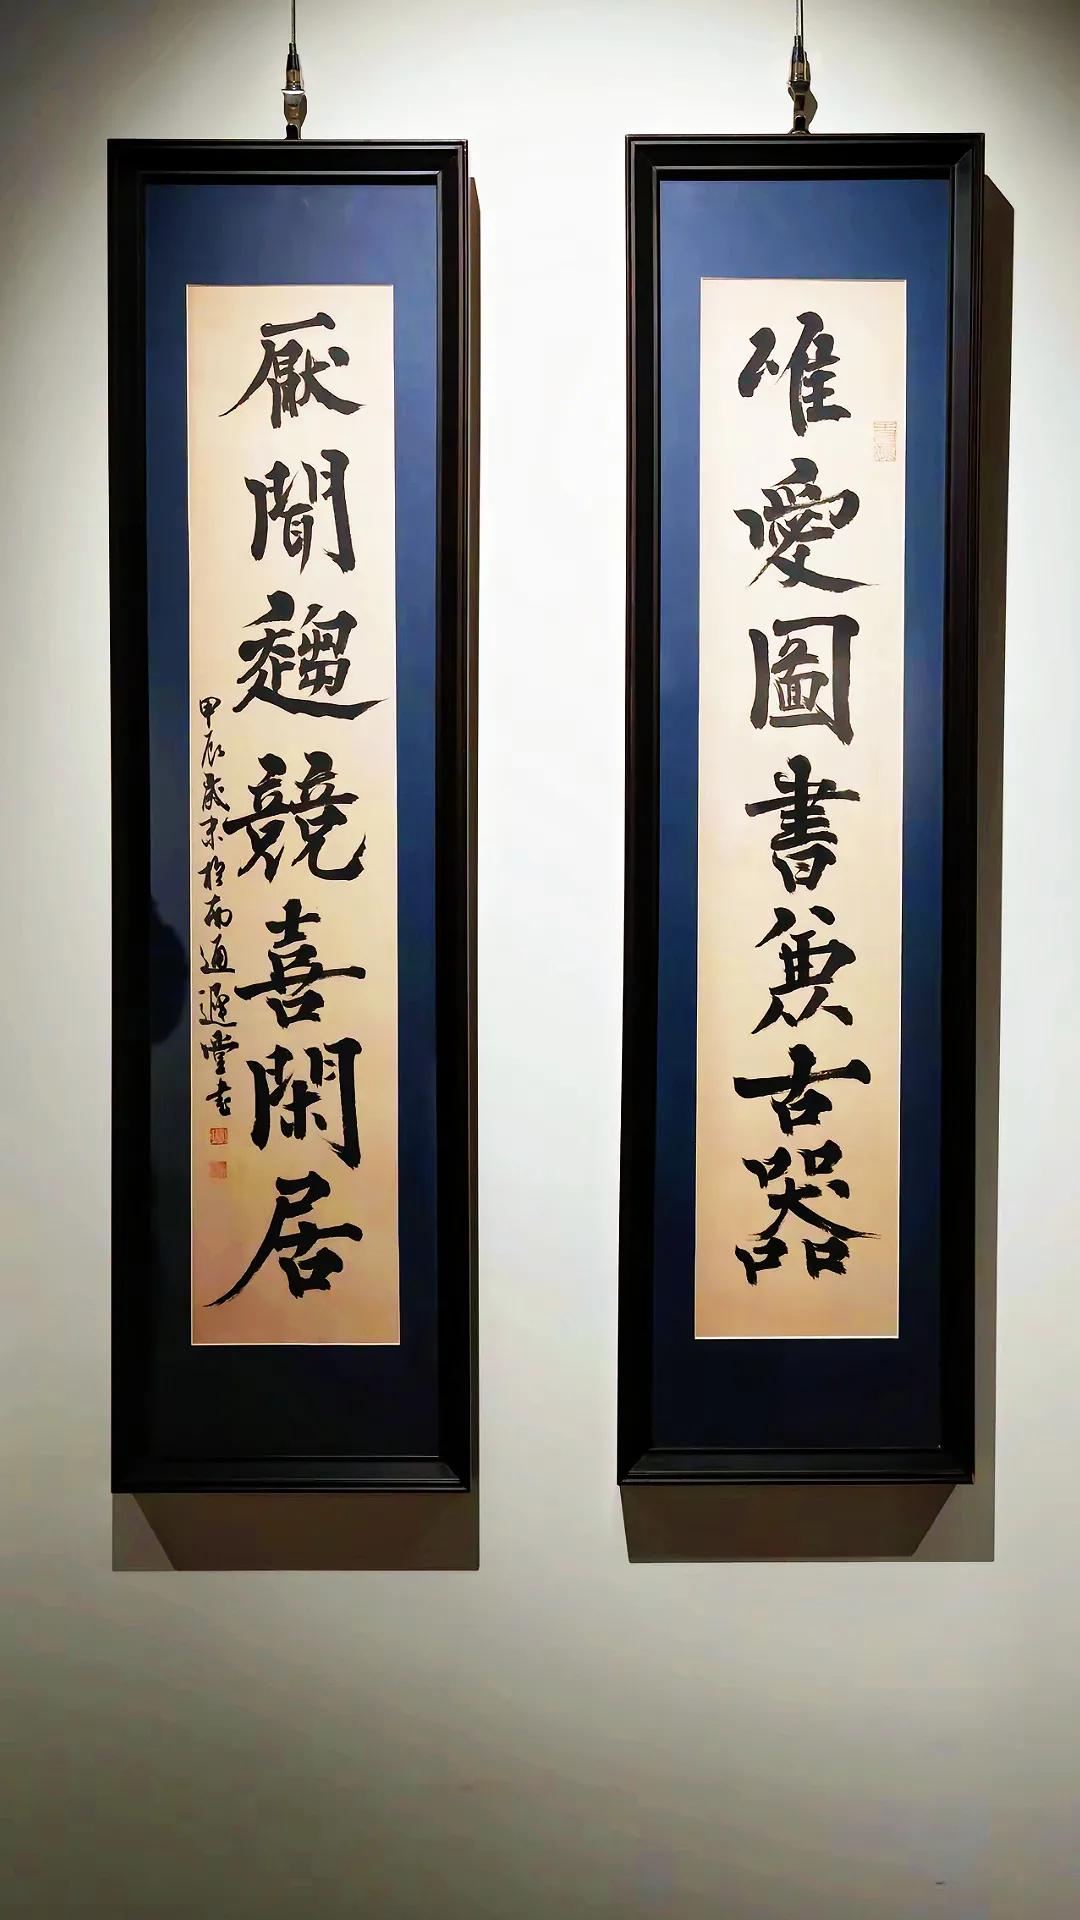 唯愛圖書兼古器
厭聞趨競喜閑居
甲辰歲末於南通遲堂書